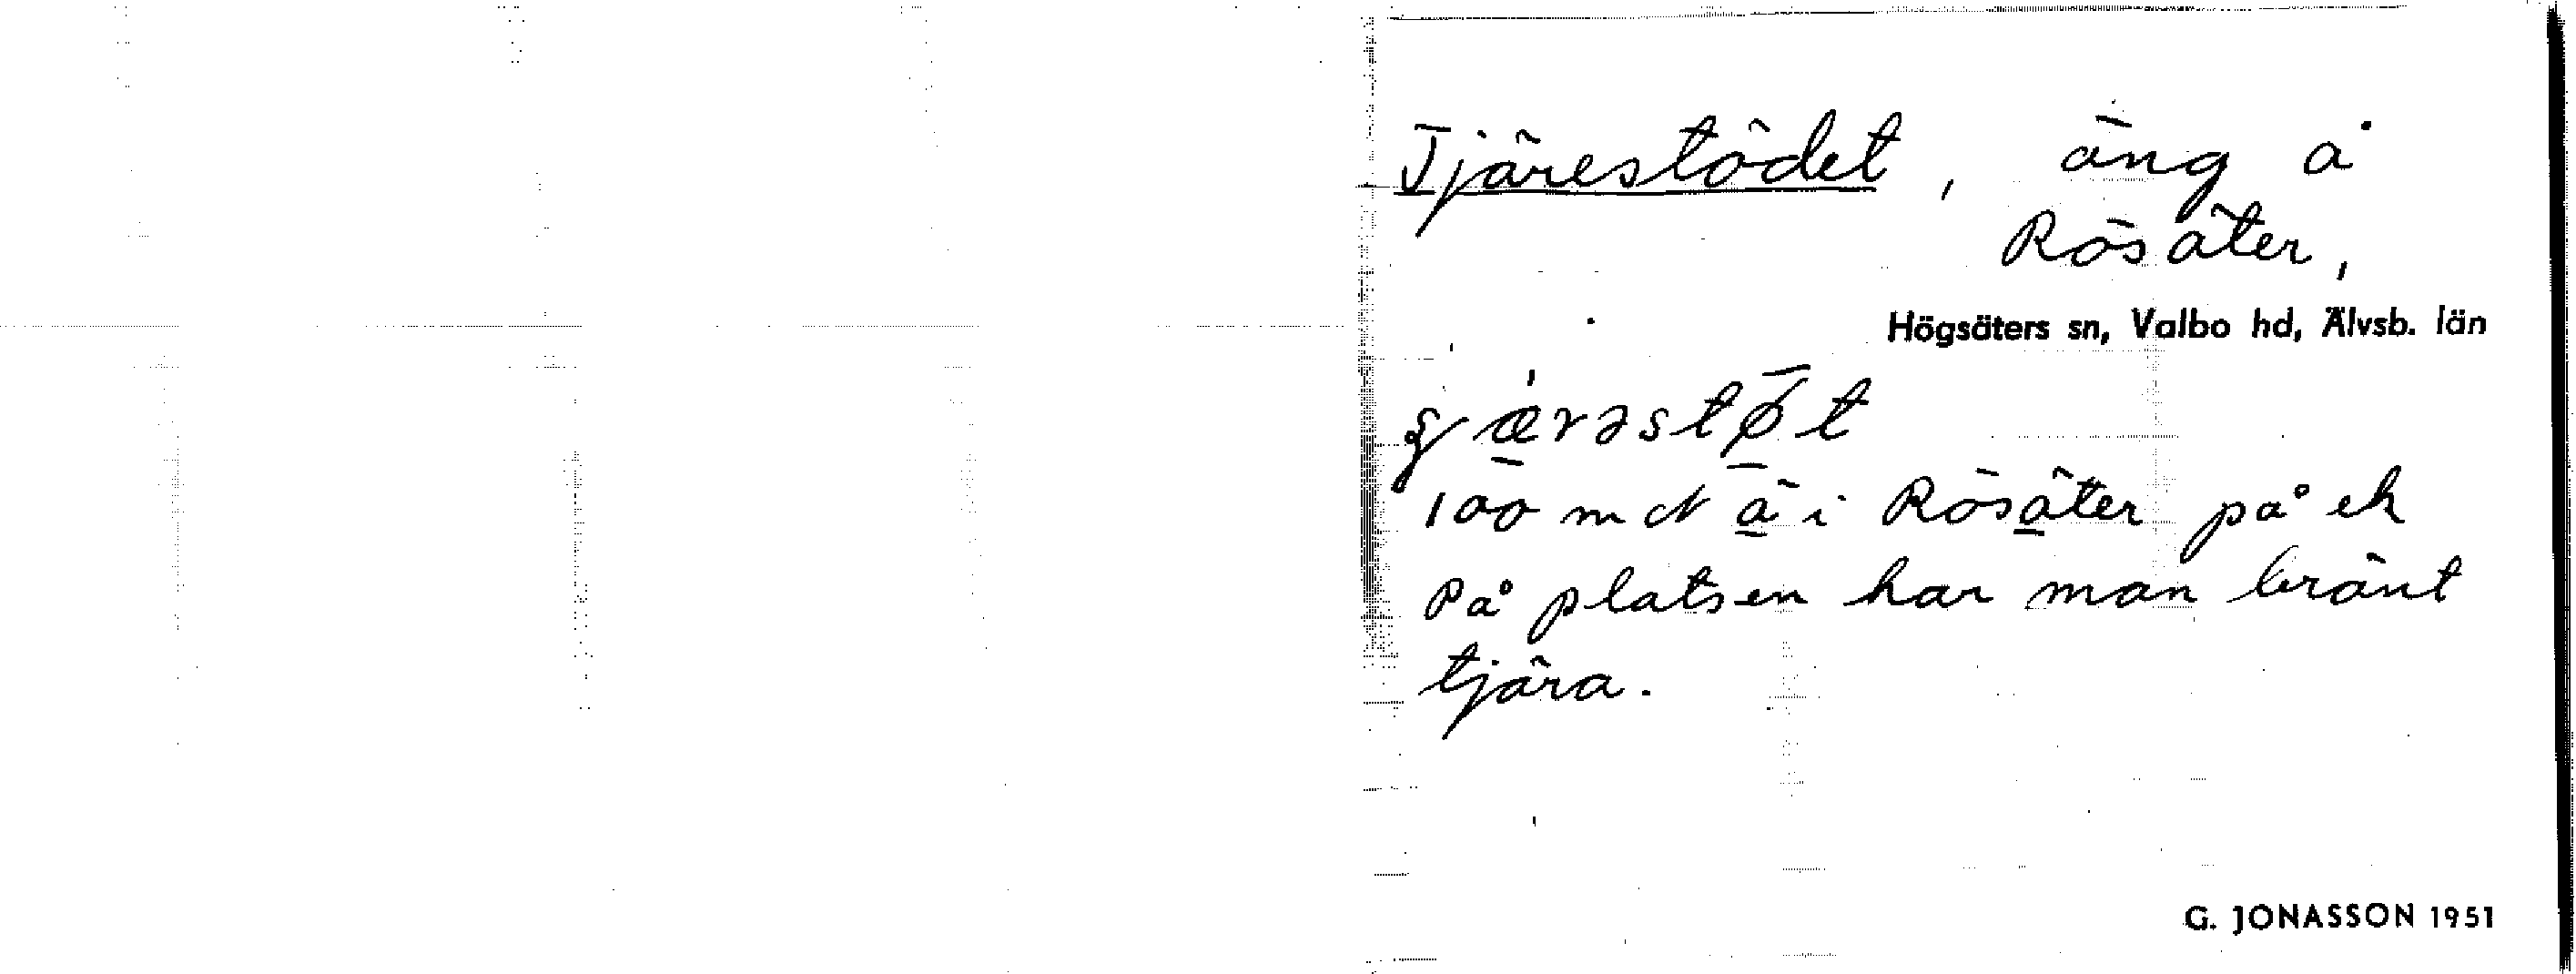 Tjärestödet, äng å
Rösäter,
Högsäters sn, Valbo hd, Älvsb. län
100 m N ä i Rösäter på ek
På platsen har man bränt
tjära.
G. JONASSON 1951